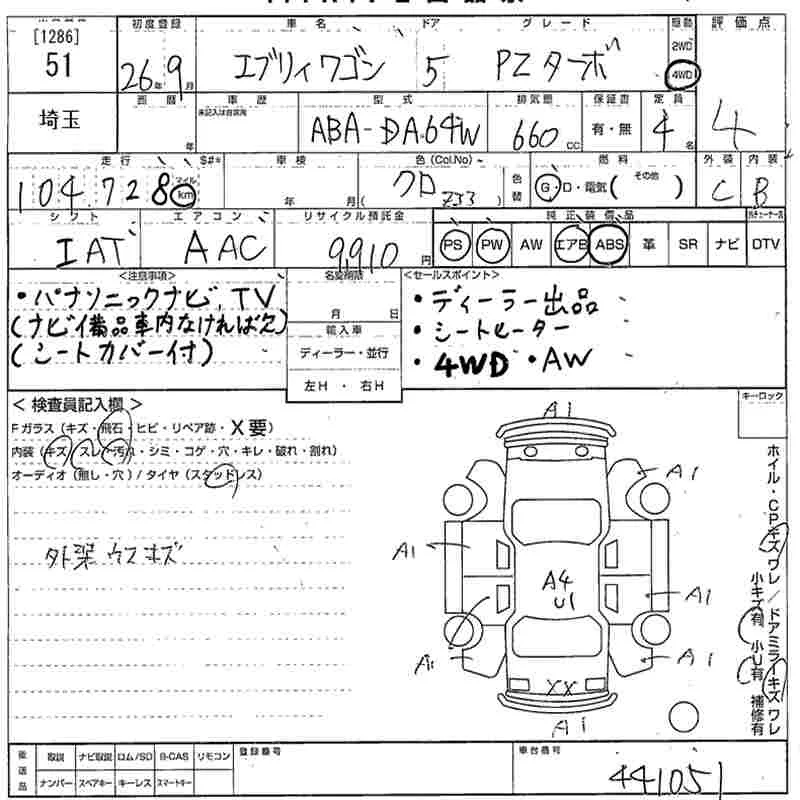 [1286]
51
埼玉
初度登録
26年9月
車名
エブリィワゴン
ドア
5
グレード
PZターボ
駆動
2WD
4WD
評価点
4
西暦
年
車歴
未記入は自家用
型式
ABA-DA64W
排気量
660cc
保証書
有・無
定員
4名
走行
104,728
マイル
km
$#*
車検
年 月
色(Col.No)
クロ
( Z33 )
色替
燃料
G・D・電気( その他 )
外装
C
内装
B
シフト
IAT
エアコン
AAC
リサイクル預託金
9,910円
純正装備品
PS PW AW エアB ABS 革 SR ナビ DTV
<注意事項>
・パナソニックナビ、TV
(ナビ備品車内なければ欠)
(シートカバー付)
名変期限
月 日
輸入車
ディーラー・並行
左H・右H
<セールスポイント>
・ディーラー出品
・シートヒーター
・4WD ・AW
<検査員記入欄>
Fガラス(キズ・飛石・ヒビ・リペア跡・X要)
内装(キズ・スレ・汚れ・シミ・コゲ・穴・キレ・破れ・割れ)
オーディオ(無し・穴)/タイヤ(スタッドレス)
外装ウスキズ
キーロック
A1
A1
A1
A4
U1
A1
A1
A1
XX
A1
ホイル・CPキズワレ/ドアミラーキズワレ
小キズ有 小U有 補修有
後送品
取説 ナビ取説 ロム/SD B-CAS リモコン
ナンバー スペアキー キーレス スマートキー
登録番号
車台番号
441051